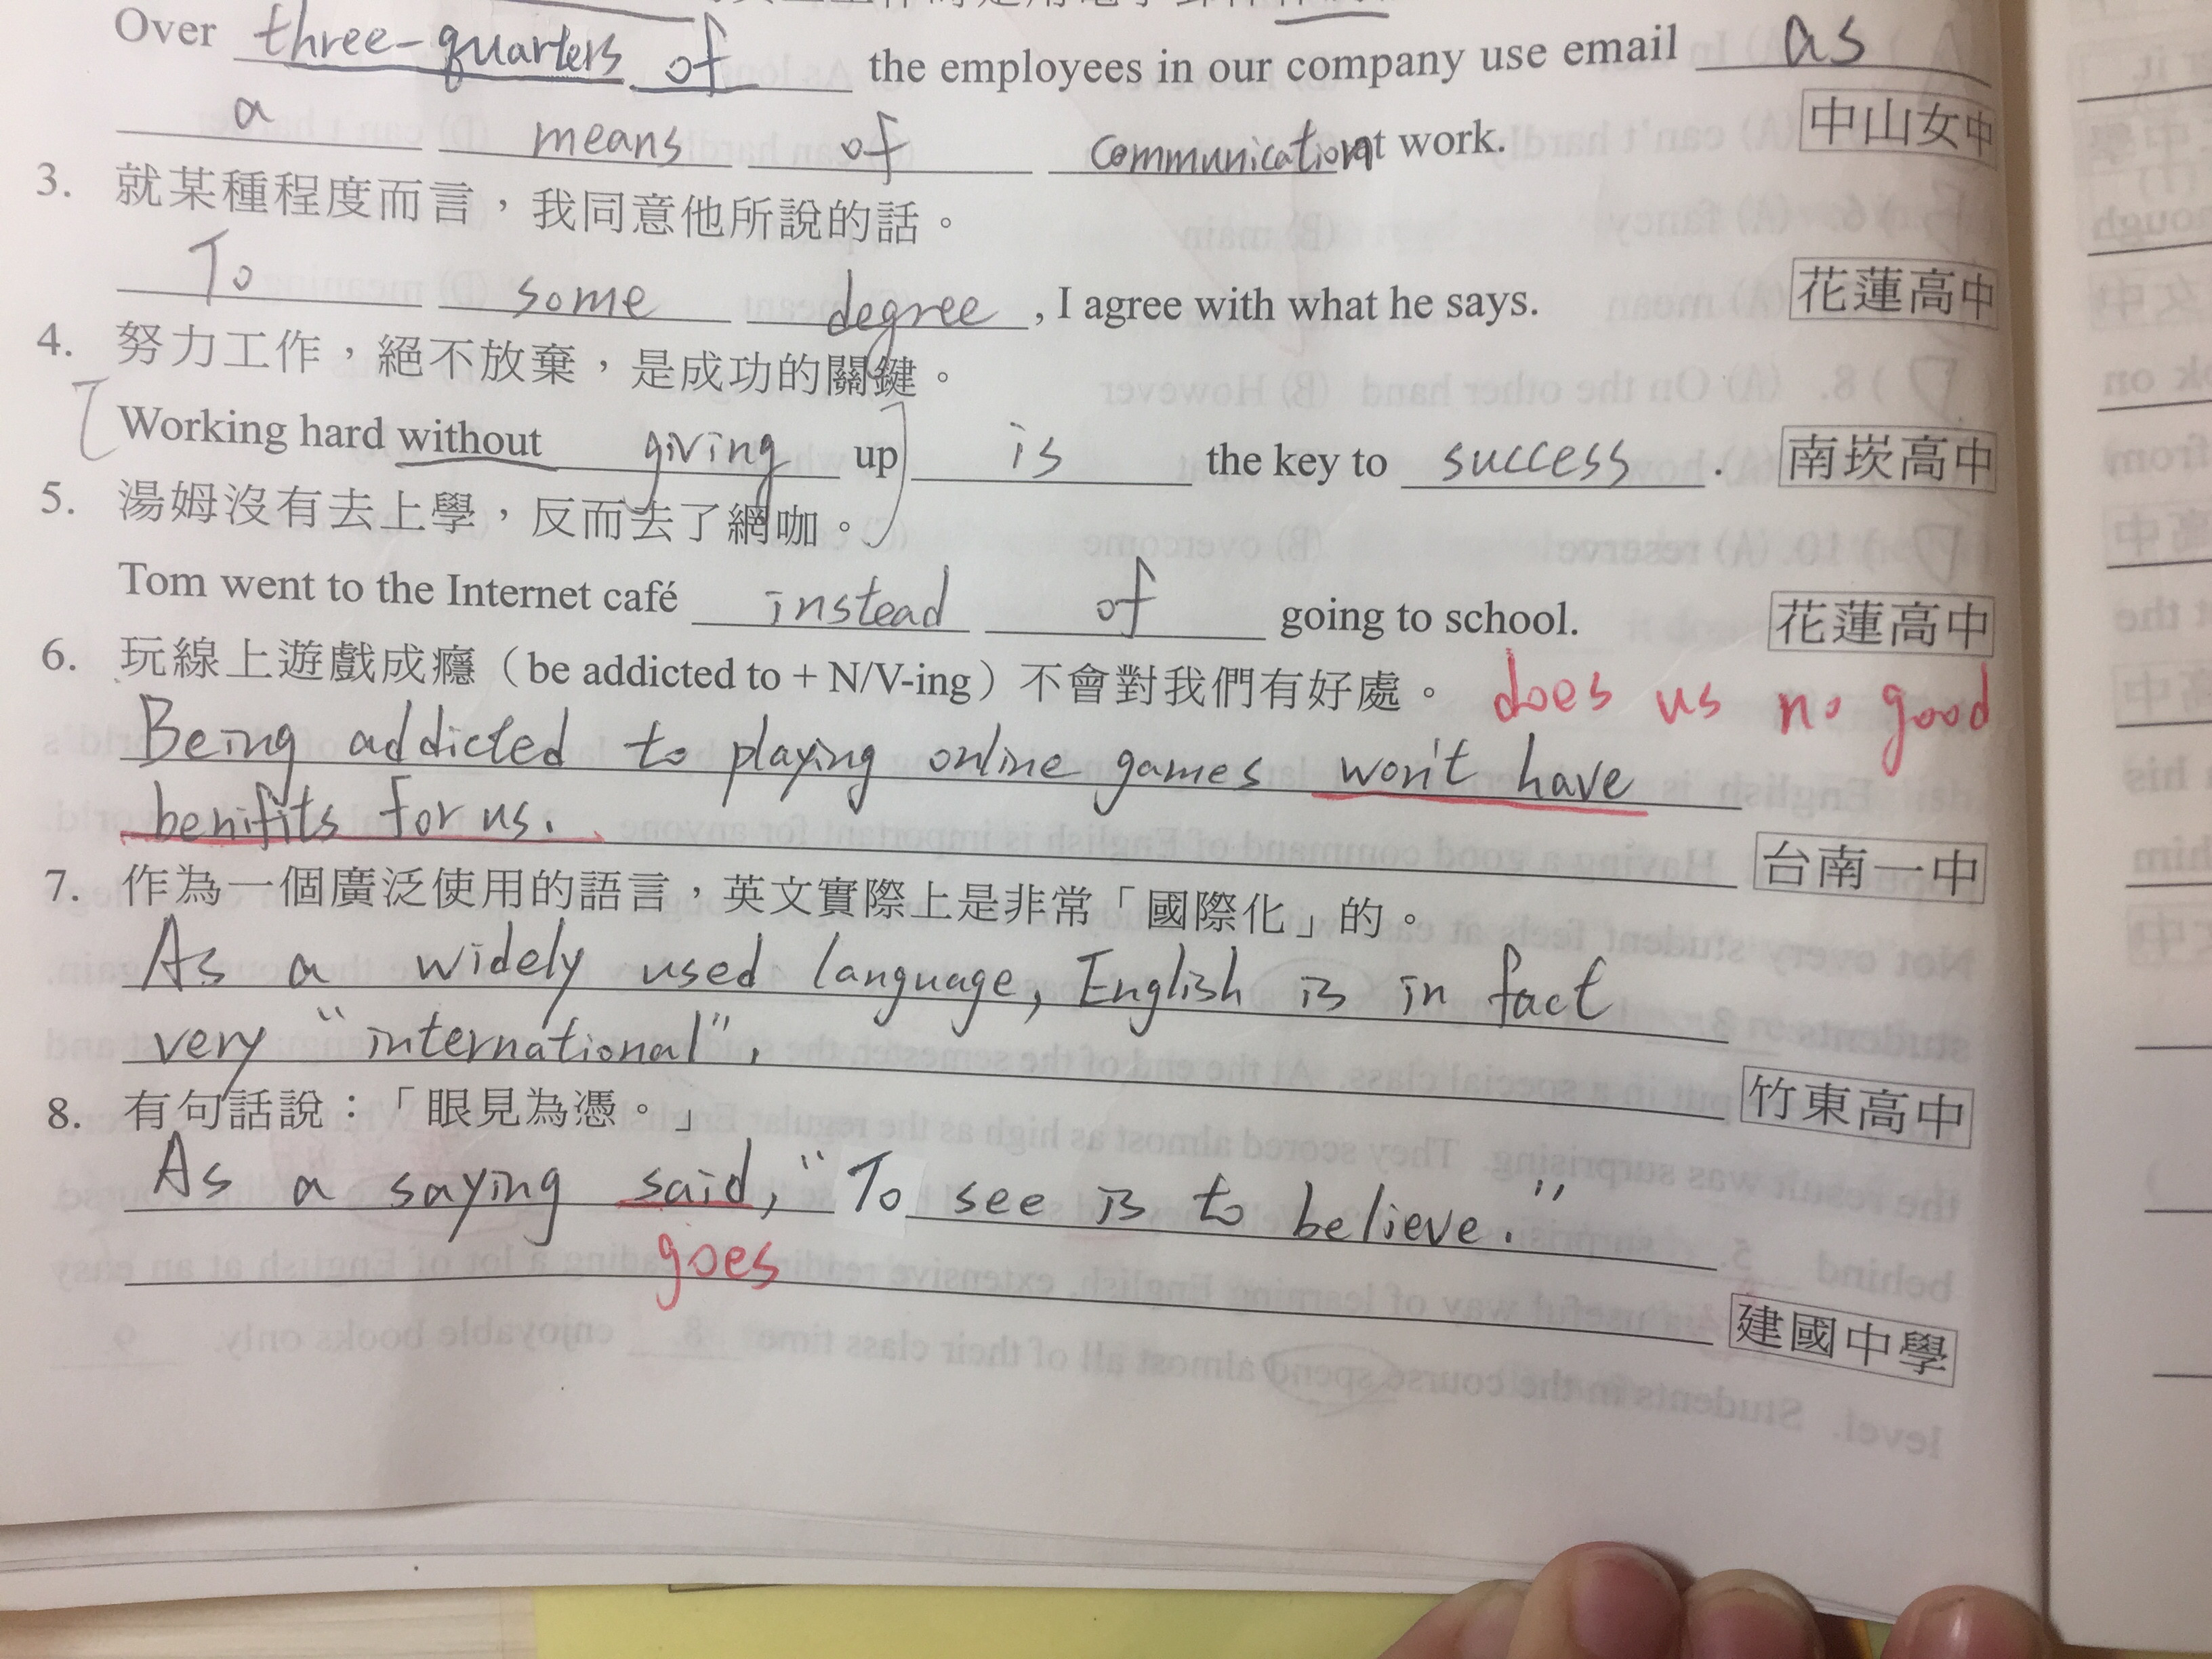 Over three-quarters of the employees in our company use email as
a means of communication at work. 中山女中
3. 就某種程度而言，我同意他所說的話。
To some degree, I agree with what he says. 花蓮高中
4. 努力工作，絕不放棄，是成功的關鍵。
[Working hard without giving up] is the key to success. 南崁高中
5. 湯姆沒有去上學，反而去了網咖。
Tom went to the Internet café instead of going to school. 花蓮高中
6. 玩線上遊戲成癮（be addicted to + N/V-ing）不會對我們有好處。 does us no good
Being addicted to playing online games won't have
benifits for us. 台南一中
7. 作為一個廣泛使用的語言，英文實際上是非常「國際化」的。
As a widely used language, English is in fact
very "international". 竹東高中
8. 有句話說：「眼見為憑。」
As a saying said, "To see is to believe."
goes
建國中學